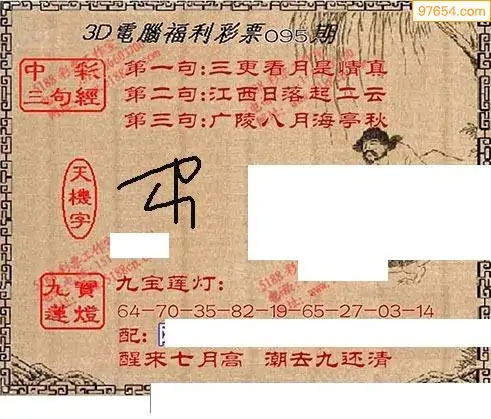 97654.com
3D電腦福利彩票095期
中彩
三句經
第一句:三更看月是情真
第二句:江西日落起二云
第三句:广陵八月海亭秋
天機字
九寶
蓮燈
九宝莲灯:
64-70-35-82-19-65-27-03-14
配:
醒来七月高 潮去九还清